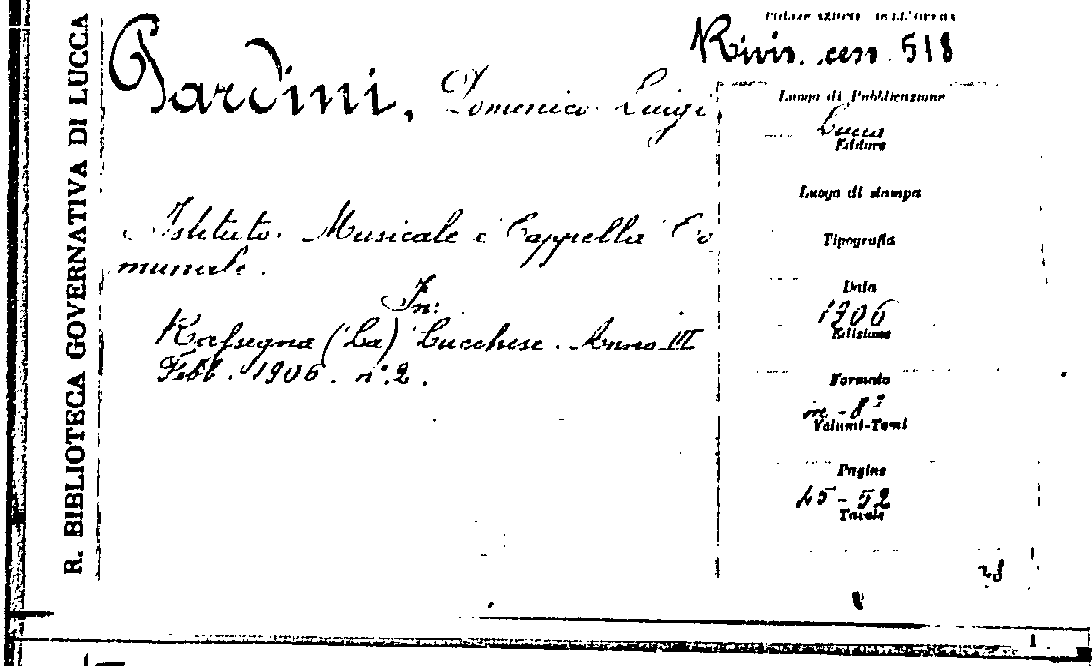 R. BIBLIOTECA GOVERNATIVA DI LUCCA
Pardini, Domenico Luigi
Istituto Musicale e Cappella Co
munale.
In:
Rassegna (La) Lucchese. Anno III
Febb. 1906. n.º 2.
COLLOCAZIONE DELL'OPERA
Rivis. cess. 518
Luogo di Pubblicazione
Lucca
Editore
Luogo di stampa
Tipografia
Data
1906
Edizione
Formato
in-8º
Volumi-Tomi
Pagine
45-52
Tavole